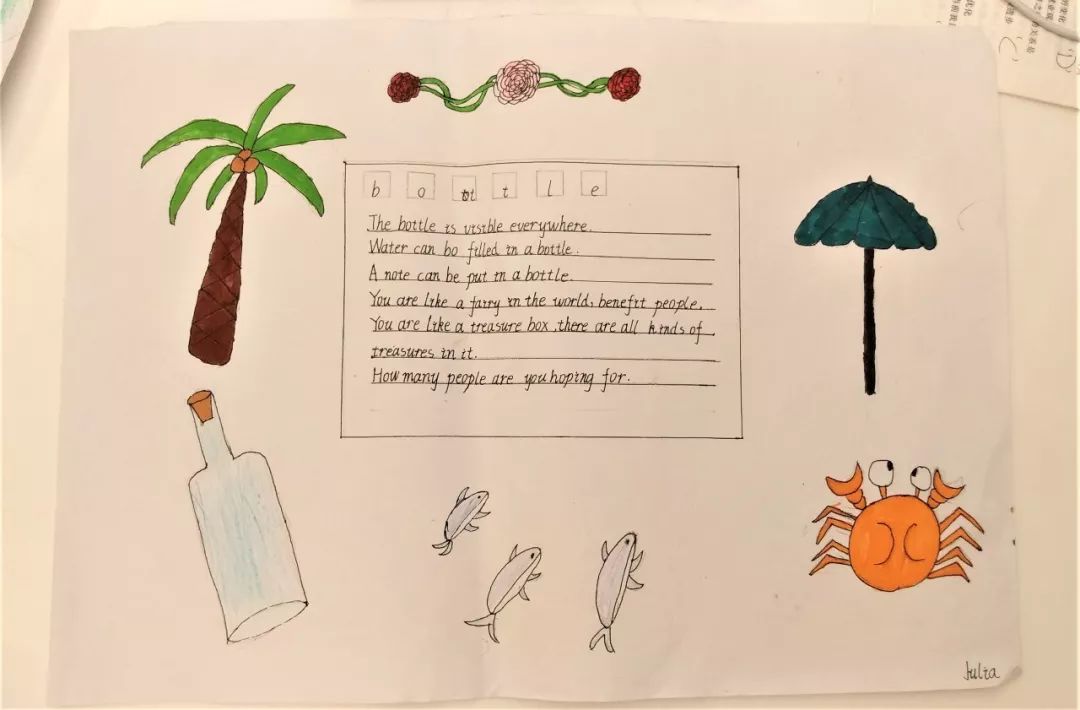 b o t t l e
The bottle is visible everywhere.
Water can bo filled in a bottle.
A note can be put in a bottle.
You are like a fairy in the world, benefit people.
You are like a treasure box, there are all kinds of
treasures in it.
How many people are you hoping for.
Julia